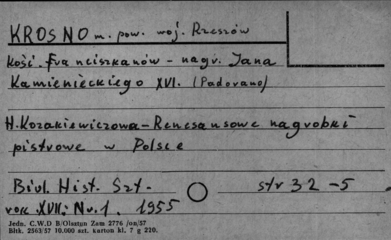 KROSNO m. pow. woj. Rzeszów
Kość. Franciszkanów - nagr. Jana
Kamienieckiego XVI. (Padovano)
H. Kozakiewiczowa - Renesansowe nagrobki
piętrowe w Polsce
Biul. Hist. Szt. - str 32-5
rok XVII; Nr. 1. 1955
Jedn. C.W.D B/Olsztyn Zam 2776/on/57
Bltk. 2563/57 10.000 szt. karton kl. 7 g 220.